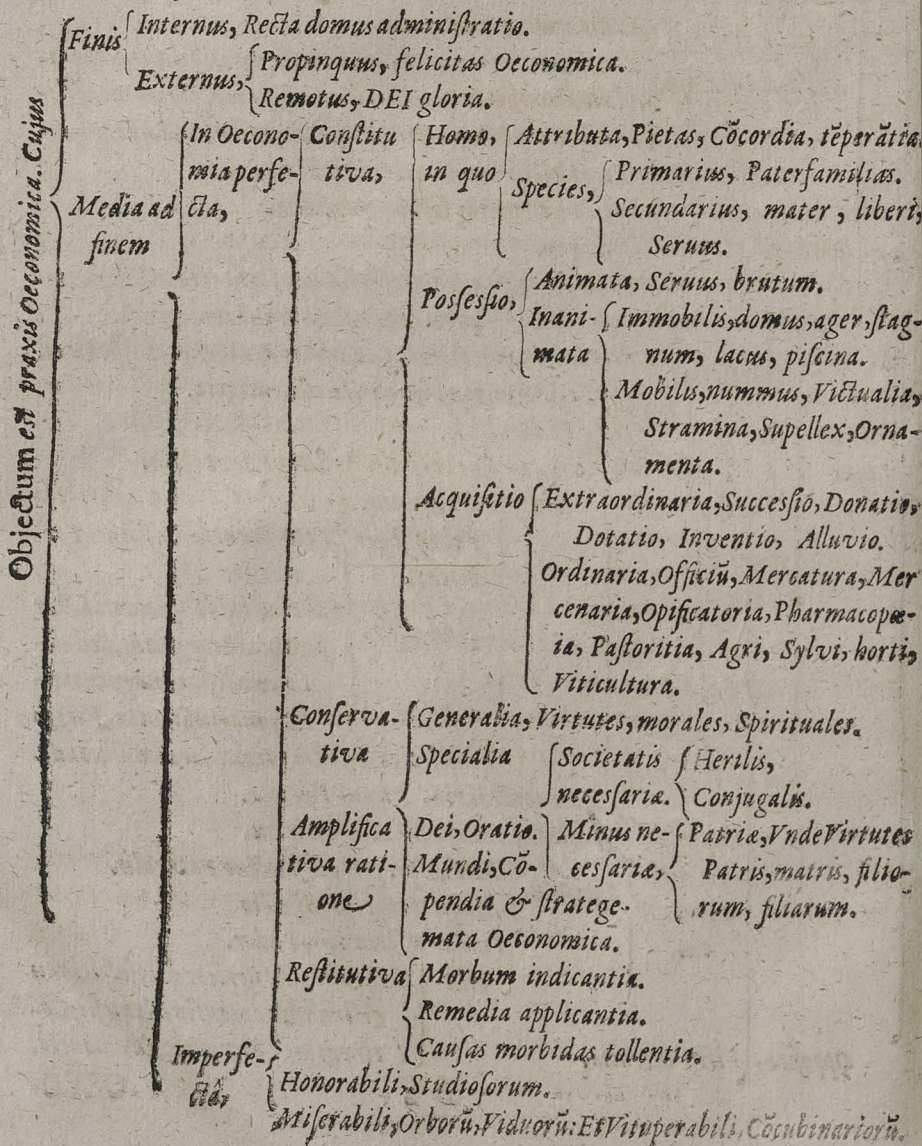 Objectum est praxis Oeconomica. Cujus
Finis
Internus, Recta domus administratio.
Externus,
Propinquus, felicitas Oeconomica.
Remotus, DEI gloria.
Media ad
finem
In Oecono-
mia perfe-
cta,
Constitu
tiva,
Homo,
in quo
Attributa, Pietas, Cōcordia, tēperātia.
Species,
Primarius, Paterfamilias.
Secundarius, mater, liberi,
Seruus.
Possessio,
Animata, Seruus, brutum.
Inani-
mata
Immobilis, domus, ager, stag-
num, lacus, piscina.
Mobilis, nummus, Victualia,
Stramina, Supellex, Orna-
menta.
Acquisitio
Extraordinaria, Successio, Donatio,
Dotatio, Inventio, Alluvio.
Ordinaria, Officiū, Mercatura, Mer
cenaria, Opificatoria, Pharmacopœ-
ia, Pastoritia, Agri, Sylvi, horti,
Viticultura.
Conserva-
tiva
Generalia, Virtutes, morales, Spirituales.
Specialia
Societatis
necessariæ.
Herilis,
Conjugalis.
Minus ne-
cessariæ,
Patriæ, Vnde Virtutes
Patris, matris, filio-
rum, filiarum.
Amplifica
tiva rati-
one
Dei, Oratio.
Mundi, Cō-
pendia & stratege-
mata Oeconomica.
Restitutiva
Morbum indicantia.
Remedia applicantia.
Causas morbidas tollentia.
Imperfe-
cta,
Honorabili, Studiosorum.
Miserabili, Orborū, Viduorū: Et Vituperabili, Cōcubinariorū.